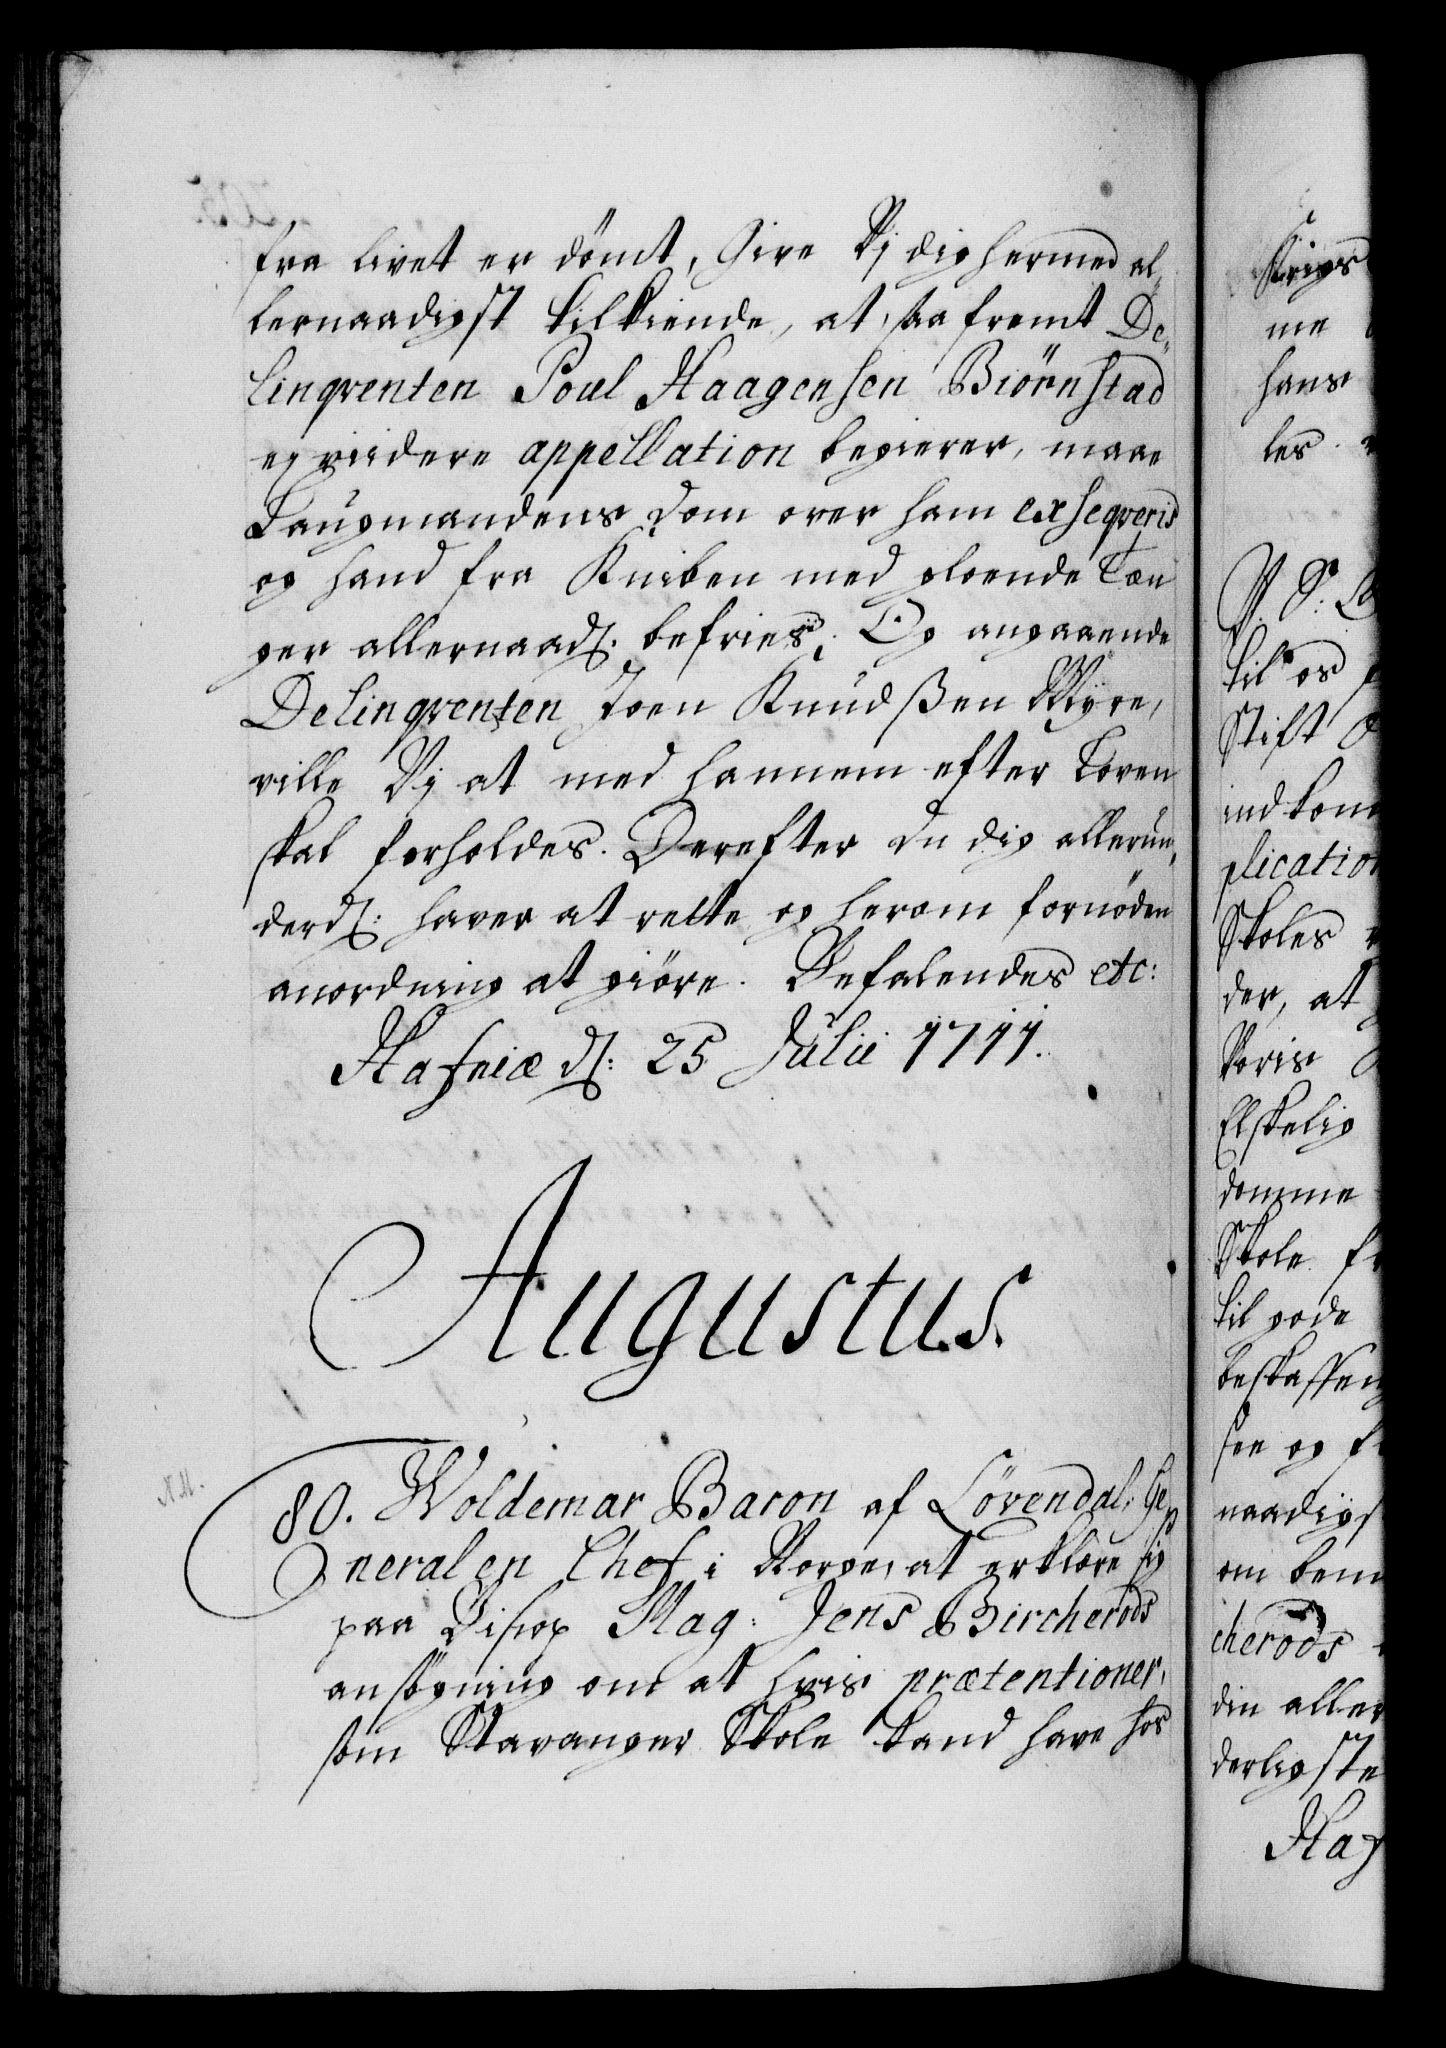 fra livet er dömt, Give Vj dig hermed al,,
lernaadigst tilkiende, at, saafremt De,,
linqventen Poul Haagensen Biörnstad
ej viidere appellation begierer, maae
Laugmandens Dom over ham exseqveris
og hand fra Kniben med gloende Tæn
ger allernaad: befries; Og angaaende
Delinqventen Joen Knudsßen Myre,
ville Vj at med hannem efter Loven
skal forholdes. Derefter du dig allerun,,
derd: haver at rette og herom fornöden
anordning at giöre. Befalendes etc:
Hafniæ d: 25 Julii 1711.
Augustus.
80. Woldemar Baron af Lövendal, Ge,,
neral en Chef i Norge, at erklære sig
paa Bisop Mag: Jens Bircherods
ansögning om at hvis prætentioner,
som Stavanger Skole kand have hos
Krigs
me
hans
les.
til os
Stift
indkom
plication
Skoles
der, at
Noris
Elskelig
domme
Skole
til gode
beskaffen
sen og
naadigs
om bem
cherods
din aller
derligste
Haf